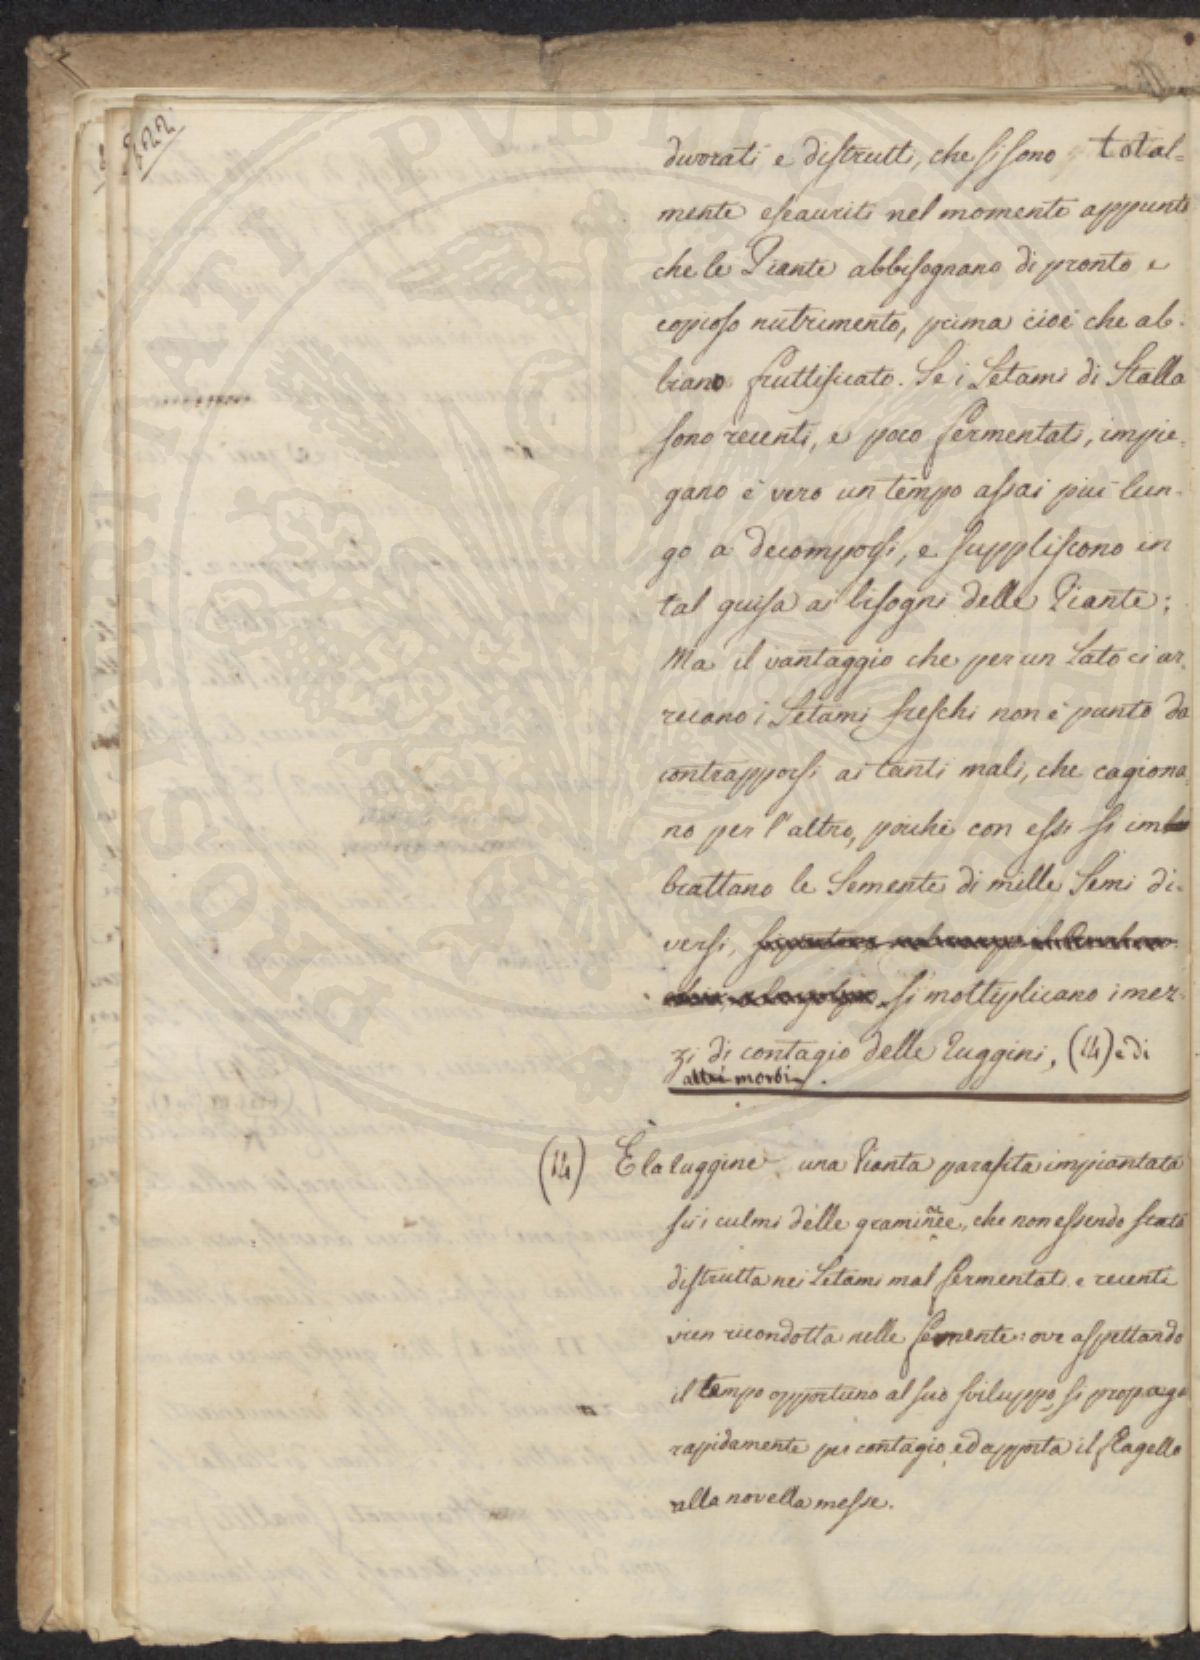 divorati e distrutti, che si sono total=
mente esauriti nel momento appunto
che le Piante abbisognano di pronto e
copioso nutrimento, prima cioè che ab-
biano fruttificato. Se i Letami di Stalla
sono recenti, e poco fermentati, impie-
gano è vero un tempo assai più lun-
go a decomporsi, e suppliscono in
tal guisa ai bisogni delle Piante;
Ma il vantaggio che per un Lato ci ar-
recano i Letami freschi non è punto da
contrapporsi ai tanti mali, che cagiona-
no per l'altro, poichè con essi si im
brattano le Semente di mille Semi di-
versi,
si moltiplicano i mez-
zi di contagio delle ruggini, (14) e di
altri morbi.
(14) È la ruggine una Pianta parasita impiantata
su i culmi delle graminee, che non essendo stata
distrutta nei Letami mal fermentati e recenti
vien ricondotta nelle semente: ove aspettando
il tempo opportuno al suo sviluppo, si propaga
rapidamente per contagio, ed apporta il flagello
alla novella messe.